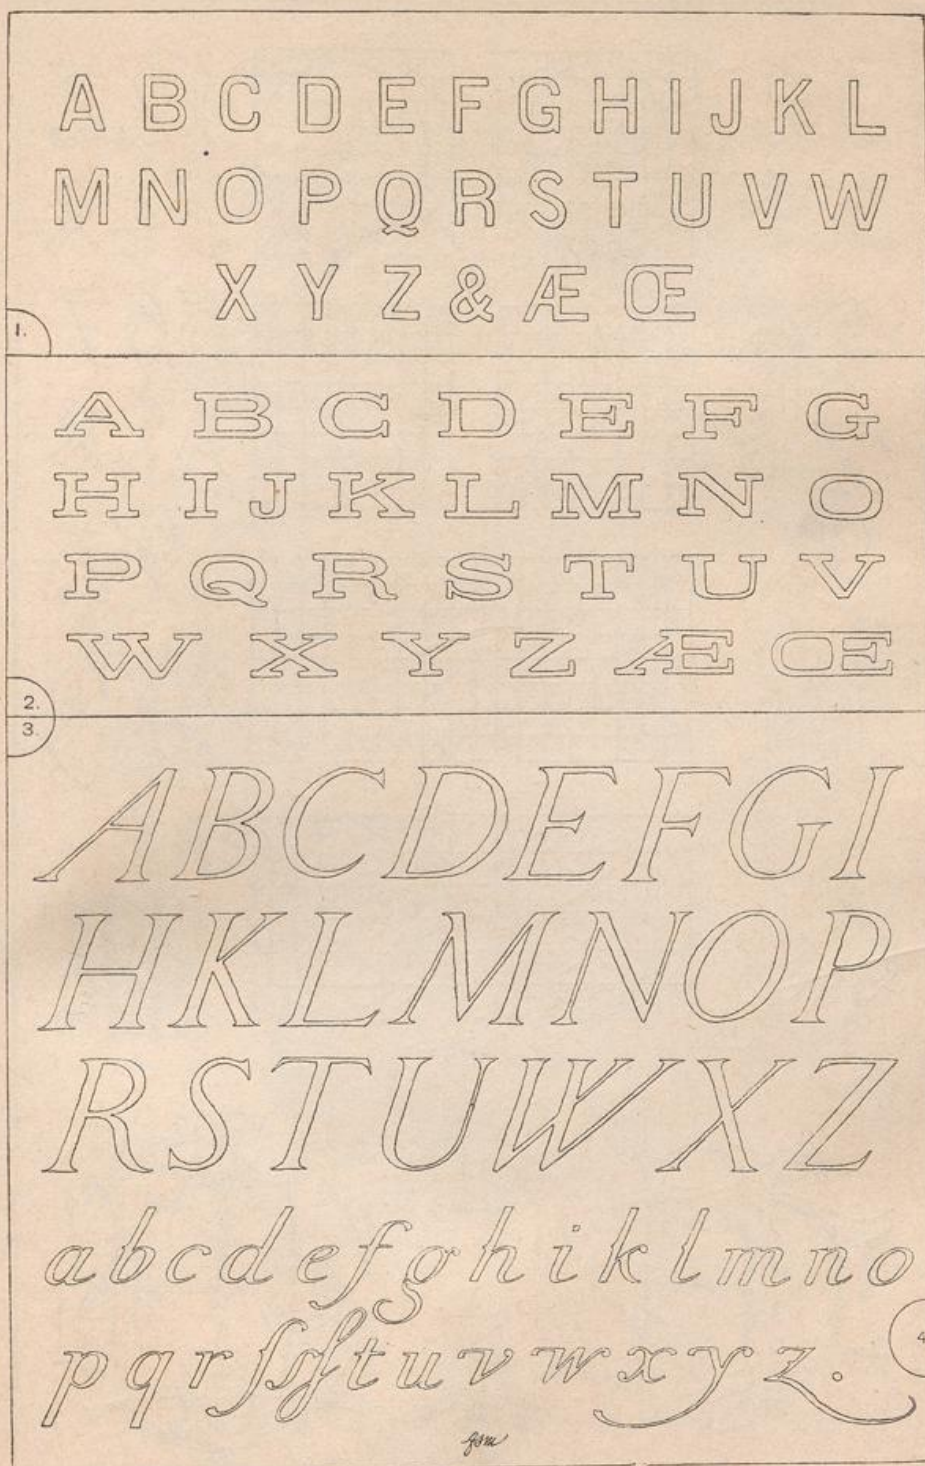 A B C D E F G H I J K L
M N O P Q R S T U V W
X Y Z & Æ Œ
1.
A B C D E F G
H I J K L M N O
P Q R S T U V
W X Y Z Æ Œ
2.
3.
A B C D E F G I
H K L M N O P
R S T U W X Z
a b c d e f g h i k l m n o
4
p q r ſ s t u v w x y z .